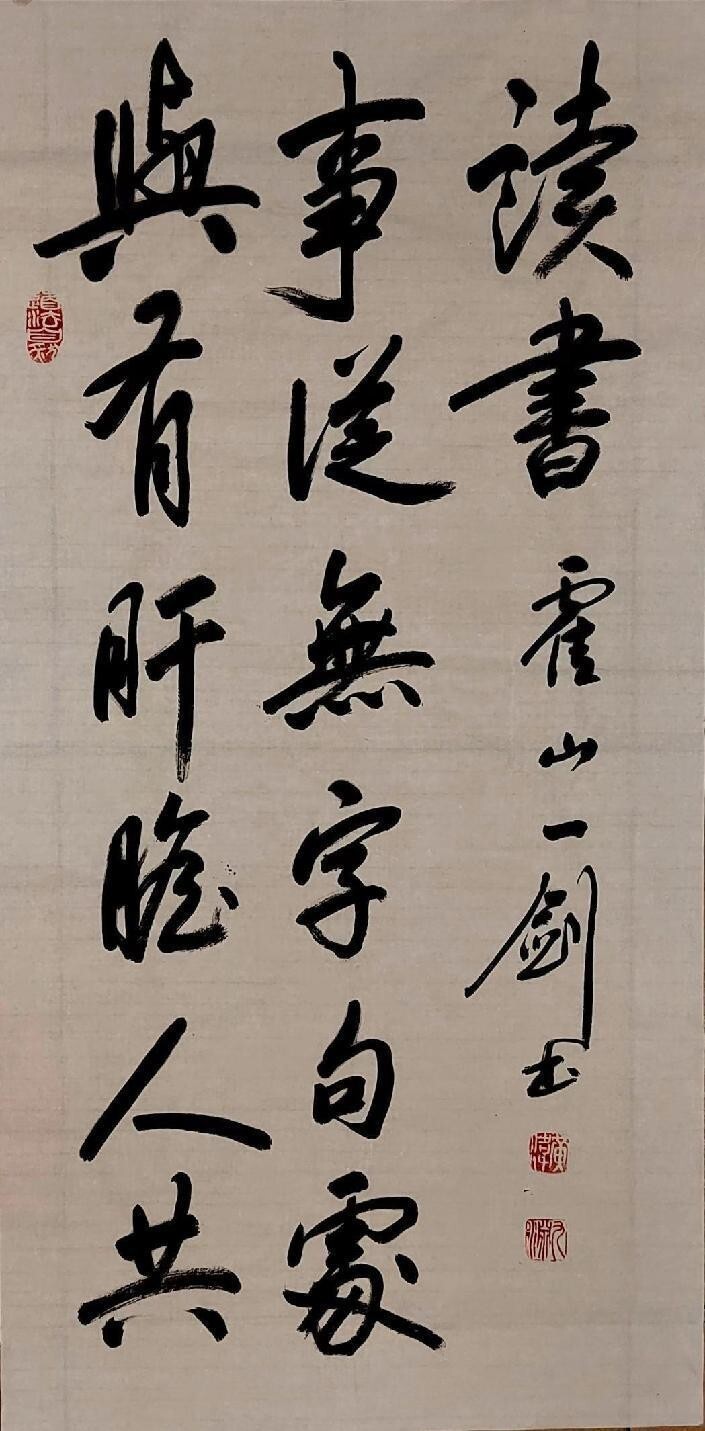 與有肝膽人共
事從無字句處
讀書
霍山一劍书